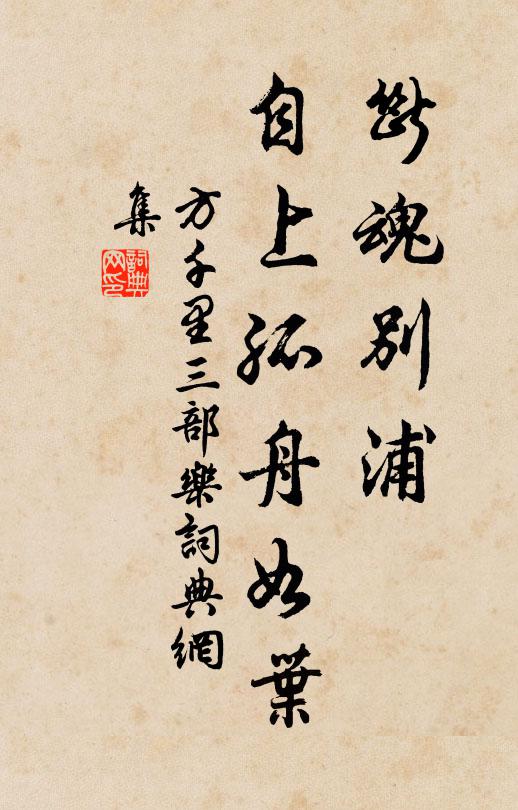 斷魂別浦
自上孤舟如葉
方千里三部樂詞典網
集
詞典
网印